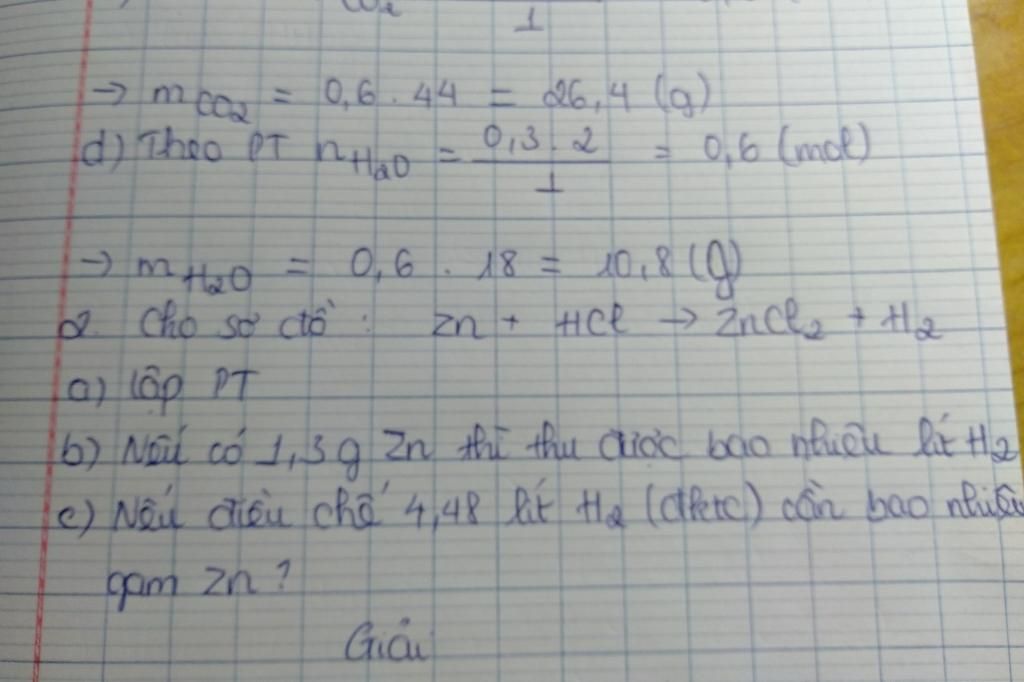 CO2 1
→ mCO2 = 0,6 . 44 = 26,4 (g)
d) Theo PT nH2O = 0,3 . 2 / 1 = 0,6 (mol)
→ mH2O = 0,6 . 18 = 10,8 (g)
2. Cho sơ đồ : Zn + HCl → ZnCl2 + H2
a) Lập PT
b) Nếu có 1,3 g Zn thì thu được bao nhiêu lít H2
c) Nếu điều chế 4,48 lít H2 (đktc) cần bao nhiêu
gam Zn ?
Giải